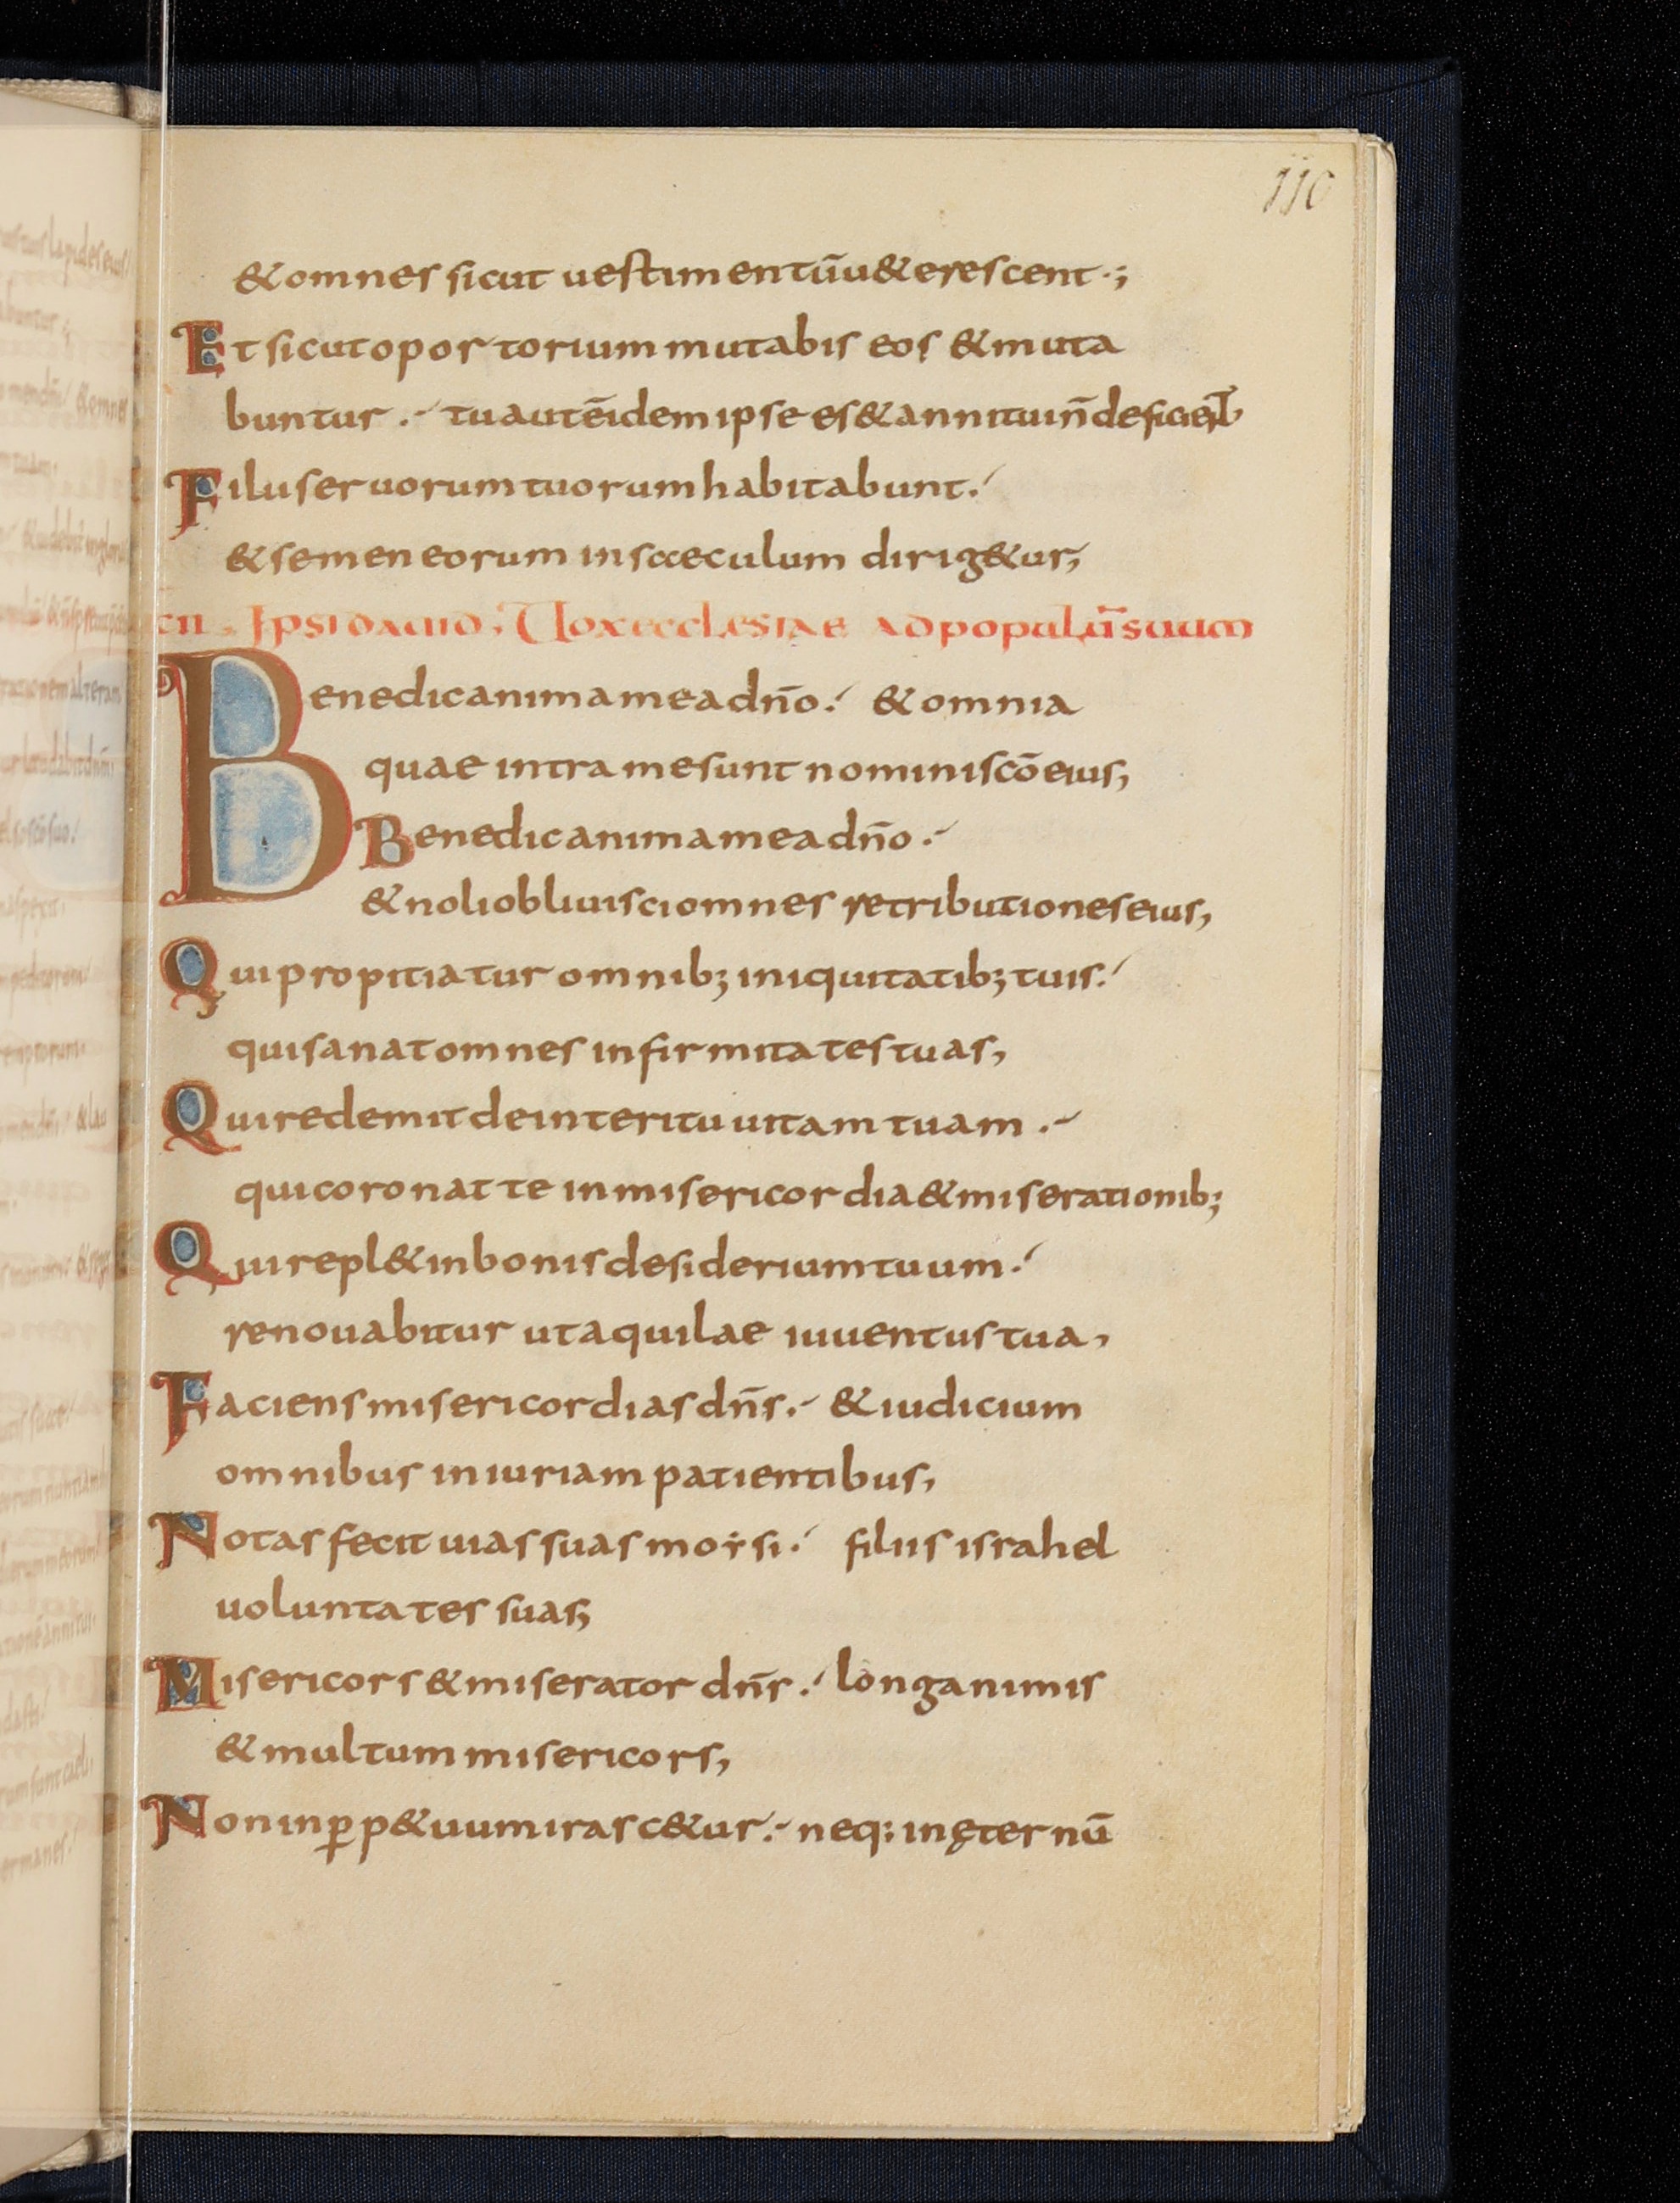 110
& omnes sicut uestimentū u&erescent·;
Et sicut oportorium mutabis eos & muta
buntur .· tu autē idem ipse es & anni tui n̄ deficient
Filii seruorum tuorum habitabunt.
& semen eorum in saeculum dirig&ur;
CII. Ipsi dauid; Uox ecclesiae ad populū suum
Benedic anima mea dn̄o. & omnia
quae intra me sunt nomini sc̄o eius,
Benedic anima mea dn̄o .
& noli obliuisci omnes retributiones eius,
Qui propitiatur omnib; iniquitatib; tuis.
qui sanat omnes infirmitates tuas,
Qui redemit de interitu uitam tuam .
qui coronat te in misericordia & miserationib;
Qui repl& in bonis desiderium tuum.
renouabitur ut aquilae iuuentus tua,
Faciens misericordias dn̄s. & iudicium
omnibus iniuriam patientibus,
Notas fecit uias suas moysi. filiis israhel
uoluntates suas;
Misericors & miserator dn̄s . longanimis
& multum misericors,
Non in ꝑp&uum irasc&ur. neq; in ęternū